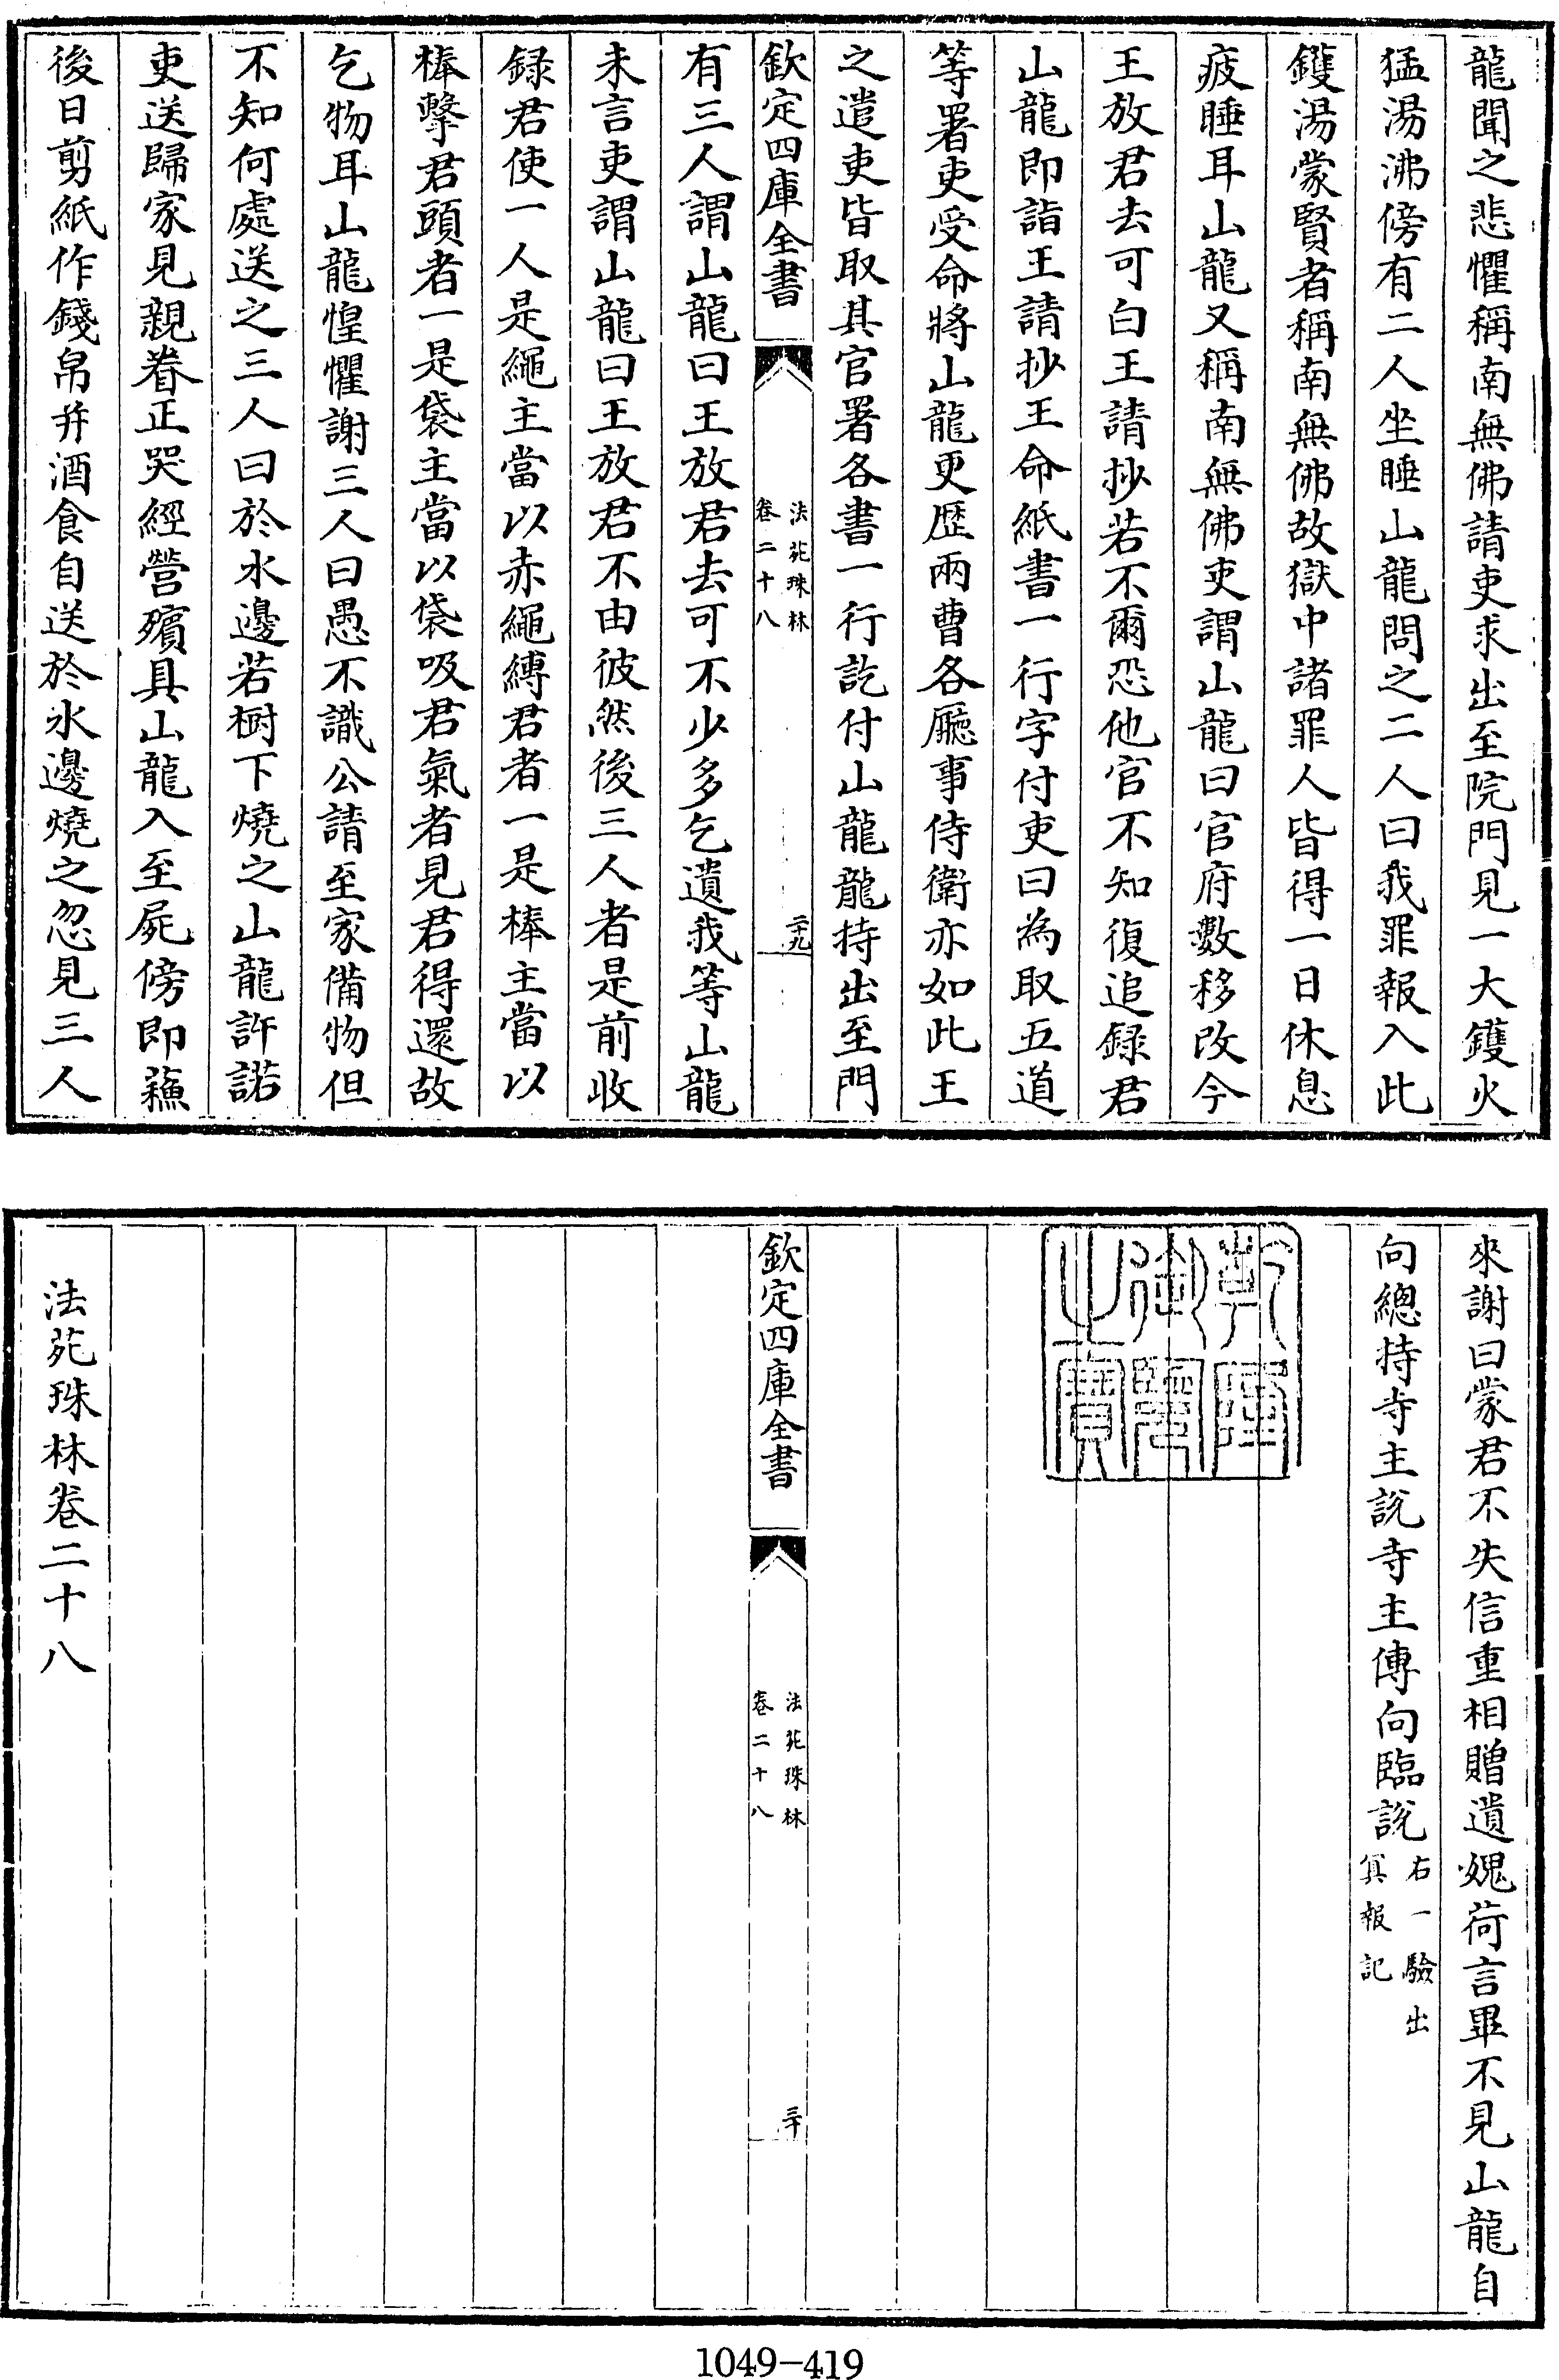 龍聞之悲懼稱南無佛請吏求出至院門見一大鑊火
猛湯沸傍有二人坐睡山龍問之二人曰我罪報入此
鑊湯蒙賢者稱南無佛故獄中諸罪人皆得一日休息
疲睡耳山龍又稱南無佛吏謂山龍曰官府數移改今
王放君去可白王請抄若不爾恐他官不知復追録君
山龍即詣王請抄王命紙書一行字付吏曰為取五道
等署吏受命將山龍更歴兩曹各廳事侍衛亦如此王
之遣吏皆取其官署各書一行訖付山龍龍持出至門
欽定四庫全書
法苑珠林
卷二十八
二十九
有三人謂山龍曰王放君去可不少多乞遺我等山龍
未言吏謂山龍曰王放君不由彼然後三人者是前收
録君使一人是繩主當以赤繩縛君者一是棒主當以
棒擊君頭者一是袋主當以袋吸君氣者見君得還故
乞物耳山龍惶懼謝三人曰愚不識公請至家備物但
不知何處送之三人曰於水邊若樹下燒之山龍許諾
吏送歸家見親眷正哭經營殯具山龍入至屍傍即蘓
後日剪紙作錢帛并酒食自送於水邊燒之忽見三人
來謝曰蒙君不失信重相贈遺媿荷言畢不見山龍自
向總持寺主說寺主傳向臨說右一驗出
冥報記
乾隆御覽之寶
欽定四庫全書
法苑珠林
卷二十八
三十
法苑珠林卷二十八
1049-419